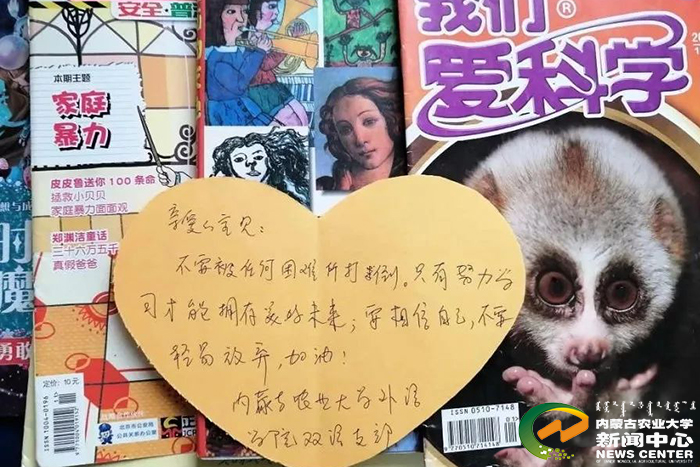 时
魔
勇敢
安全·普
本期主题
家庭
暴力
皮皮鲁送你100条命
拯救小贝贝
家庭暴力面面观
郑渊洁童话
三十六万五千
真假爸爸
定价：10元
ISSN 1004-0196
我们®
爱科学
亲爱的宝贝：
不要被任何困难所打倒。只有努力学
习才能拥有美好未来；要相信自己，不要
轻易放弃，加油！
内蒙古农业大学外语
学院双语支部
ISSN 0510-7148
内蒙古农业大学
新闻中心
NEWS CENTER